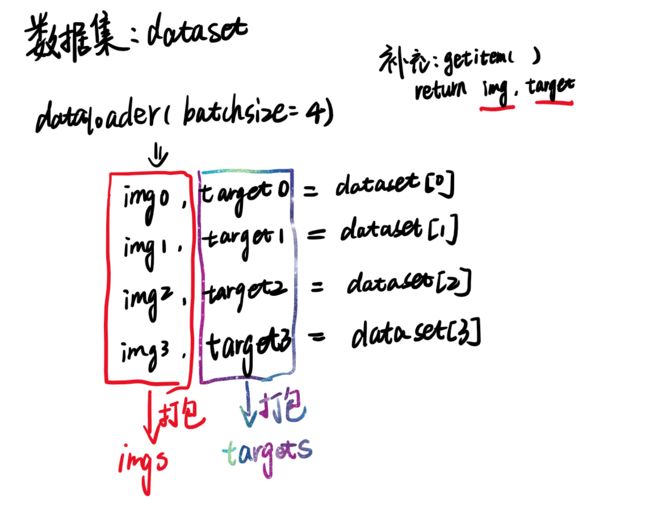 数据集：dataset
补充：getitem( )
return img, target
dataloader(batchsize=4)
img0, target0 = dataset[0]
img1, target1 = dataset[1]
img2, target2 = dataset[2]
img3, target3 = dataset[3]
打包 打包
imgs targets